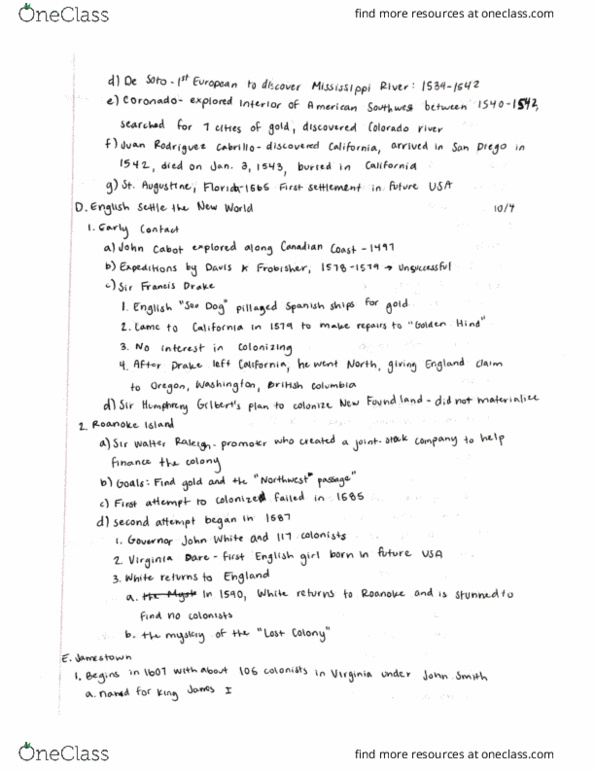 OneClass
find more resources at oneclass.com
d) De Soto - 1st European to discover Mississippi River: 1539-1542
e) Coronado - explored interior of American Southwest between 1540-1542,
searched for 7 cities of gold, discovered Colorado river
f) Juan Rodriguez Cabrillo - discovered California, arrived in San Diego in
1542, died on Jan. 3, 1543, buried in California
g) St. Augustine, Florida-1565 First settlement in future USA
D. English Settle the New World 10/4
1. Early Contact
a) John Cabot explored along Canadian Coast - 1497
b) Expeditions by Davis & Frobisher, 1578-1579 → Unsuccessful
c) Sir Francis Drake
1. English "Sea Dog" pillaged Spanish ships for gold
2. Came to California in 1579 to make repairs to "Golden Hind"
3. No interest in colonizing
4. After Drake left California, he went North, giving England claim
to Oregon, Washington, British Columbia
d) Sir Humphrey Gilbert's plan to colonize New Foundland - did not materialize
2. Roanoke Island
a) Sir Walter Raleigh - promoter who created a joint-stock company to help
finance the colony
b) Goals: Find gold and the "Northwest" passage"
c) First attempt to colonize failed in 1585
d) second attempt began in 1587
1. Governor John White and 117 colonists
2. Virginia Dare - First English girl born in future USA
3. White returns to England
a. the Myst In 1590, White returns to Roanoke and is stunned to
find no colonists
b. the mystery of the "Lost Colony"
E. Jamestown
1. Begins in 1607 with about 105 colonists in Virginia under John Smith
a. named for King James I
OneClass
find more resources at oneclass.com